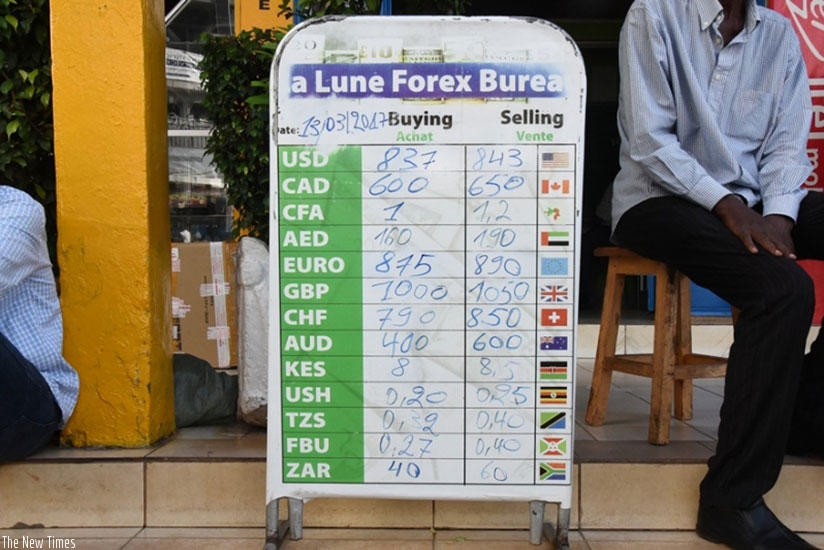 a Lune Forex Burea
Date: 13/03/2017 Buying Selling
Achat Vente
USD 837 843
CAD 600 650
CFA 1 1,2
AED 160 190
EURO 875 890
GBP 1000 1050
CHF 790 850
AUD 400 600
KES 8 8,5
USH 0,20 0,25
TZS 0,32 0,40
FBU 0,27 0,40
ZAR 40 60
The New Times